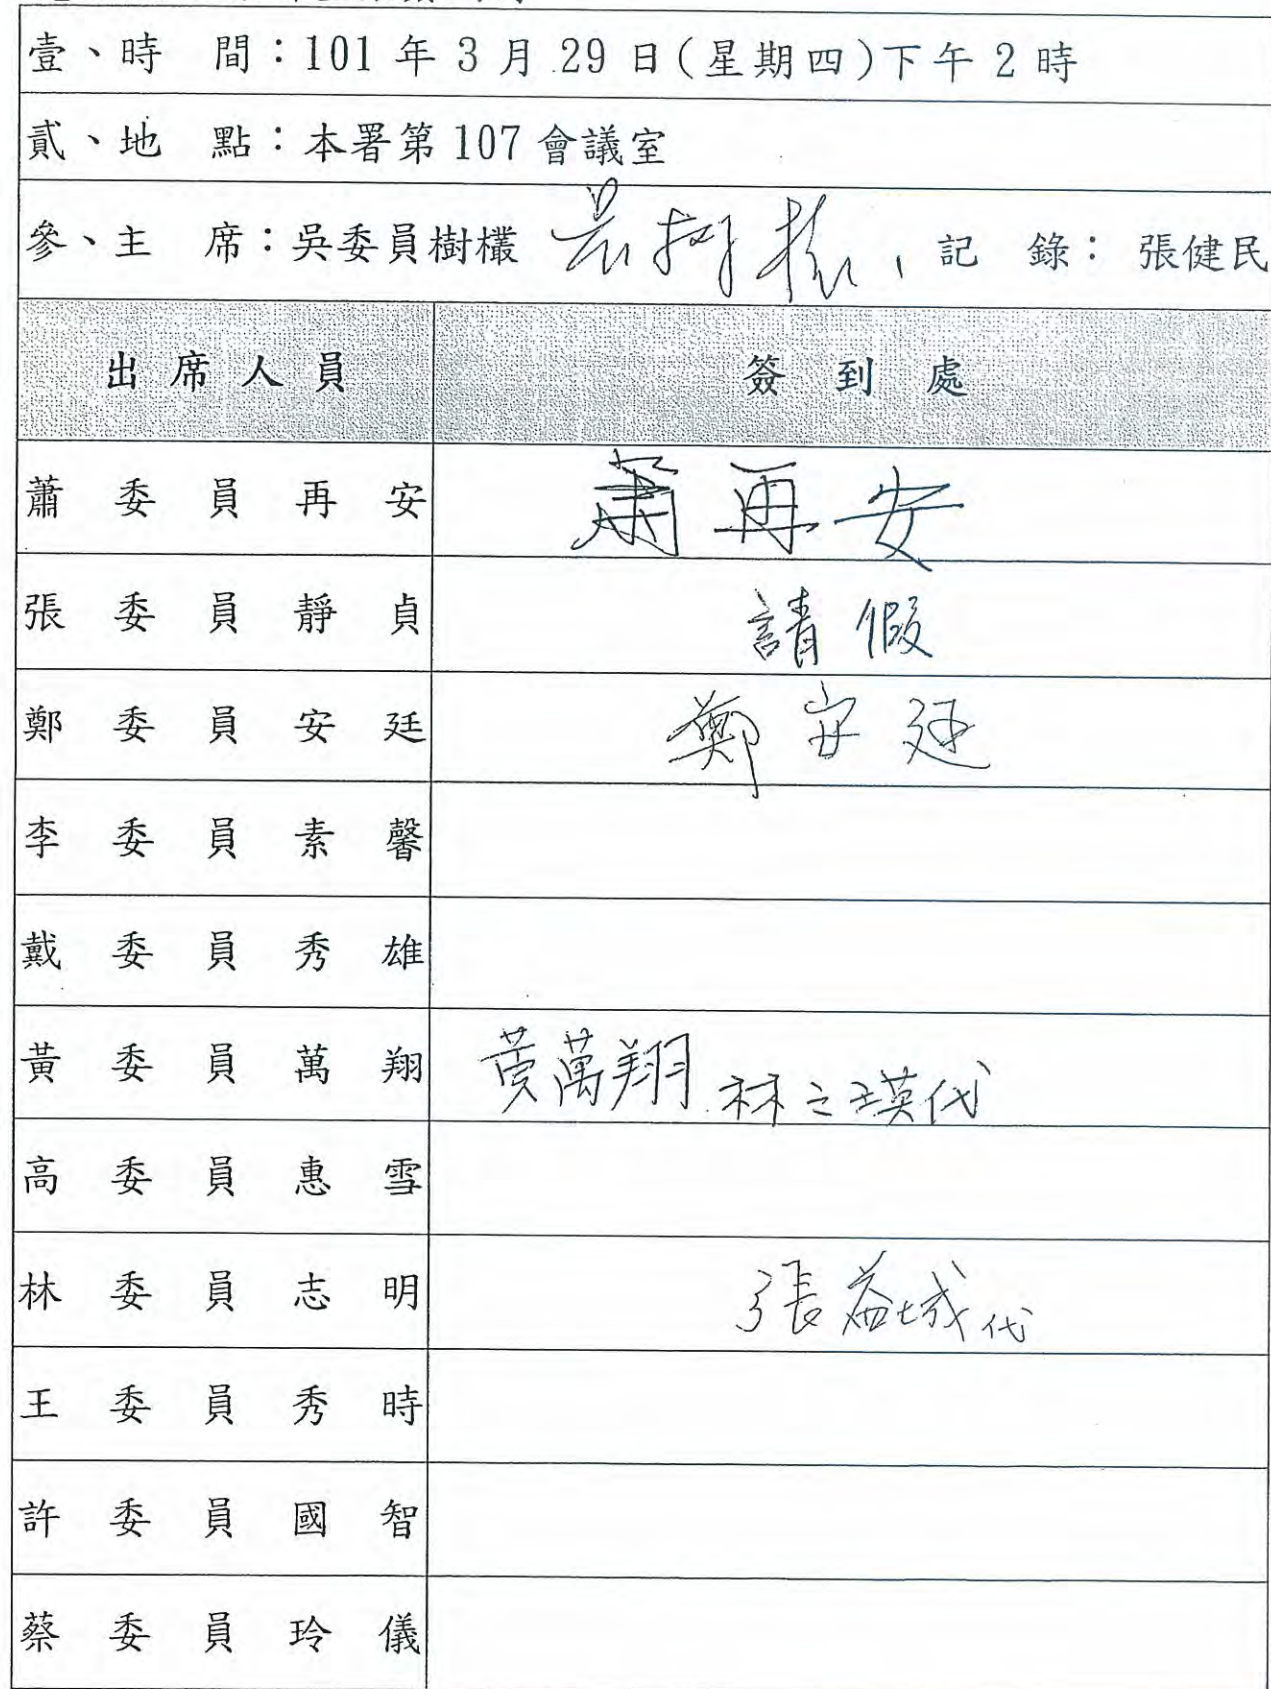 壹、時　間：101 年 3 月 29 日(星期四)下午 2 時
貳、地　點：本署第 107 會議室
參、主　席：吳委員樹欉 吳樹欉 記　錄： 張健民
出席人員 簽到處
蕭委員再安 蕭再安
張委員靜貞 請假
鄭委員安廷 鄭安廷
李委員素馨
戴委員秀雄
黃委員萬翔 黃萬翔 林之瑛代
高委員惠雪
林委員志明 張益城代
王委員秀時
許委員國智
蔡委員玲儀